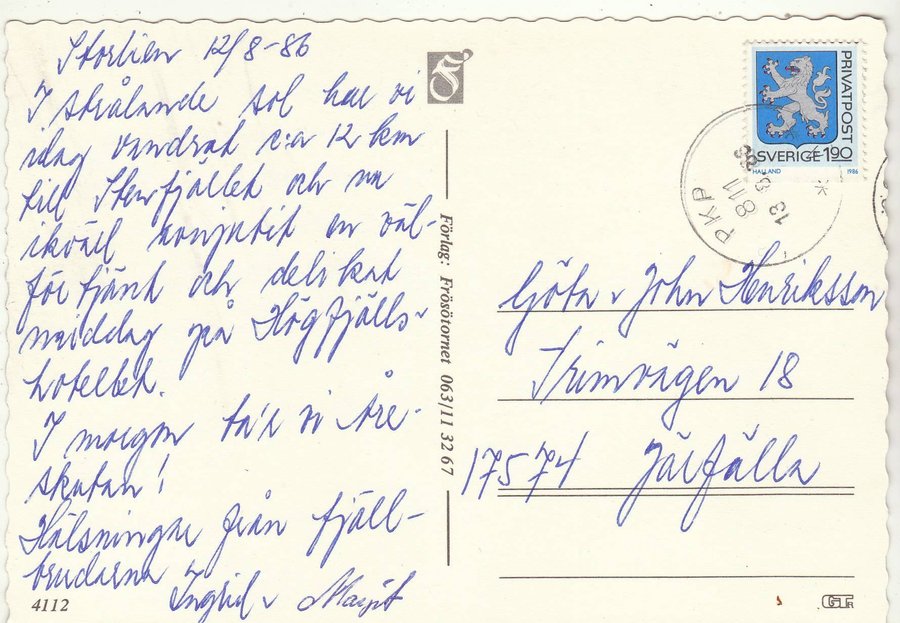 Storlien 12/8-86
I strålande sol har vi
idag vandrat c:a 12 km
till Stenfjället och nu
ikväll avnjutit en väl-
förtjänt och delikat
middag på Högfjälls-
hotellet.
I morgon ta'r vi Åre-
skutan!
Hälsningar från fjäll-
brudarna
Ingrid v Margit
4112
Förlag: Frösötornet 063/11 32 67
PRIVATPOST
SVERIGE 1.90
HALLAND 1986
PKP
811
13 8 86
Göta v John Henriksson
Trimvägen 18
17574 Järfälla
GT